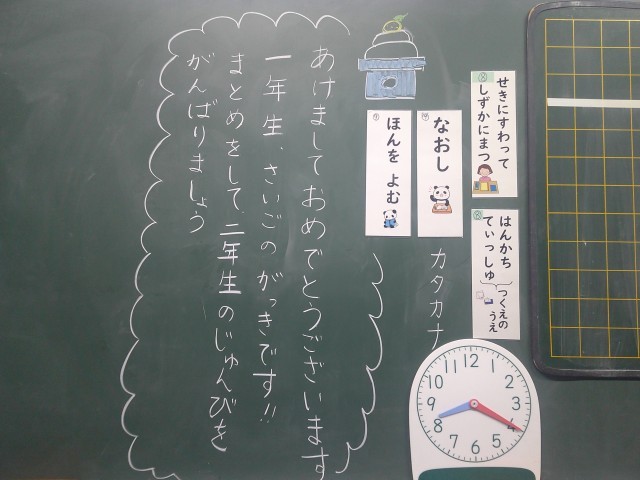 ⑧せきにすわって
しずかにまつ
⑨はんかち
てぃっしゅ
つくえの
うえ
なおし
カタカナ
ほんを よむ
あけましておめでとうございます
一年生、さいごのがっきです!!
まとめをして、二年生のじゅんびを
がんばりましょう
12
1
2
3
4
5
6
7
8
9
10
11